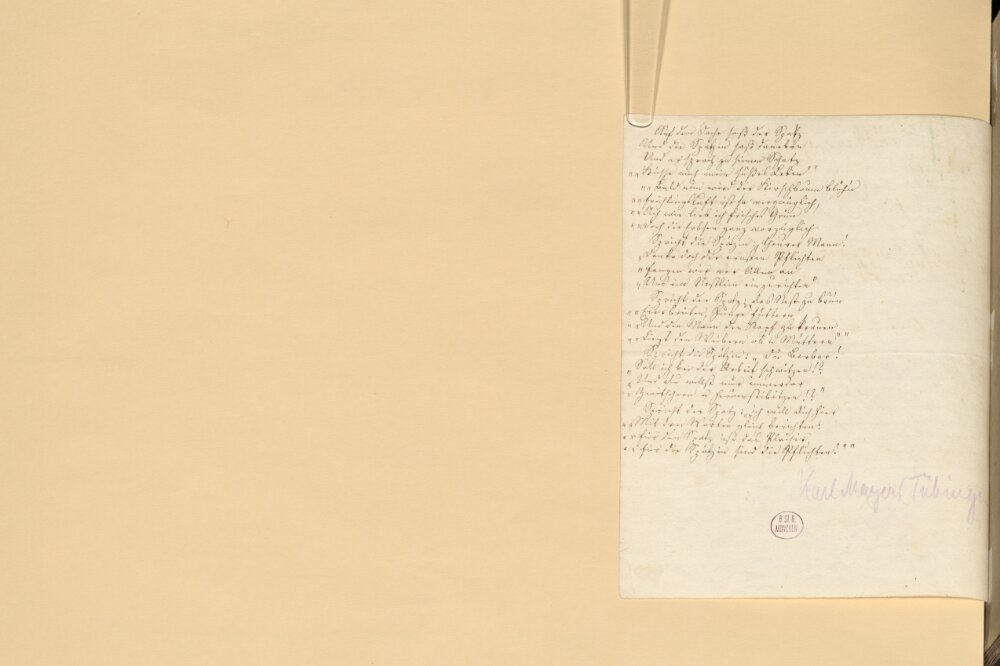 Auf dem Dache saß der Spatz
Und die Spätzin saß daneben
Und er sprach zu seinem Schatz
""Küsse mich mein süßes Leben""
""Bald nun wird der Kirschbaum blüh'n
""Frühlingsluft ist so vergnüglich,
""Ach wie lieb ich frisches Grün
""Doch die Erbsen ganz vorzüglich
Spricht die Spätzin "Theurer Mann!
"Denke doch der ernsten Pflichten
"Fangen wir vor Allem an
"Uns ein Nestlein einzurichten"
Spricht der Spatz: ""das Nest zu bau'n
""Eier brüten, Junge füttern
""Und dem Mann den Kopf zu krauen
""Liegt den Weibern ob u Müttern""
Spricht die Spätzin: "Du Barbar!
"Soll ich bei der Arbeit schwitzen!?
"Und du willst nur immerdar
"Zwitschern u herumstibitzen!?"
Spricht der Spatz: ""ich will dich hier
""Mit den Worten gleich berichten:
""Für den Spatz ist das Plaisir,
""Für die Spätzin sind die Pflichten!""
Karl Mayer Tübing
B. St. B.
MÜNCHEN